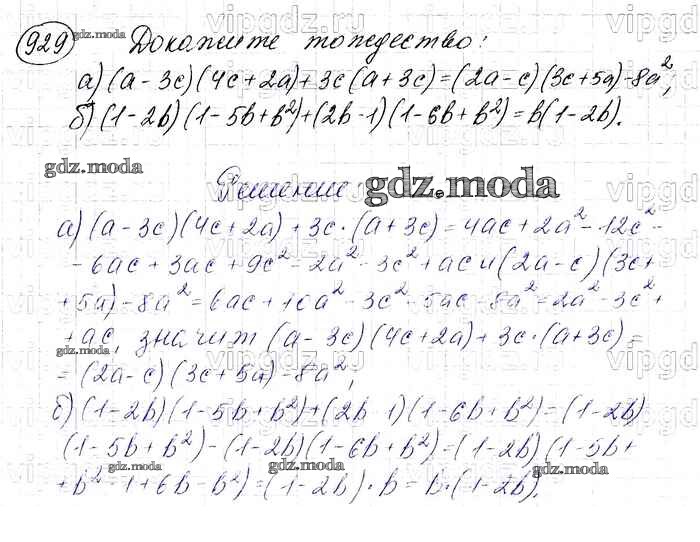 929 Докажите тождество:
а) (a-3c)(4c+2a)+3c(a+3c)=(2a-c)(3c+5a)-8a²;
б) (1-2b)(1-5b+b²)+(2b-1)(1-6b+b²)=b(1-2b).
gdz.moda
Решение: gdz.moda
а) (a-3c)(4c+2a)+3c·(a+3c)=4ac+2a²-12c²-
-6ac+3ac+9c²=2a²-3c²+ac и (2a-c)(3c+
+5a)-8a²=6ac+10a²-3c²-5ac-8a²=2a²-3c²+
+ac, значит (a-3c)(4c+2a)+3c·(a+3c)=
=(2a-c)(3c+5a)-8a²;
б) (1-2b)(1-5b+b²)+(2b-1)(1-6b+b²)=(1-2b)
(1-5b+b²)-(1-2b)(1-6b+b²)=(1-2b)(1-5b+
+b²-1+6b-b²)=(1-2b)·b=b·(1-2b).